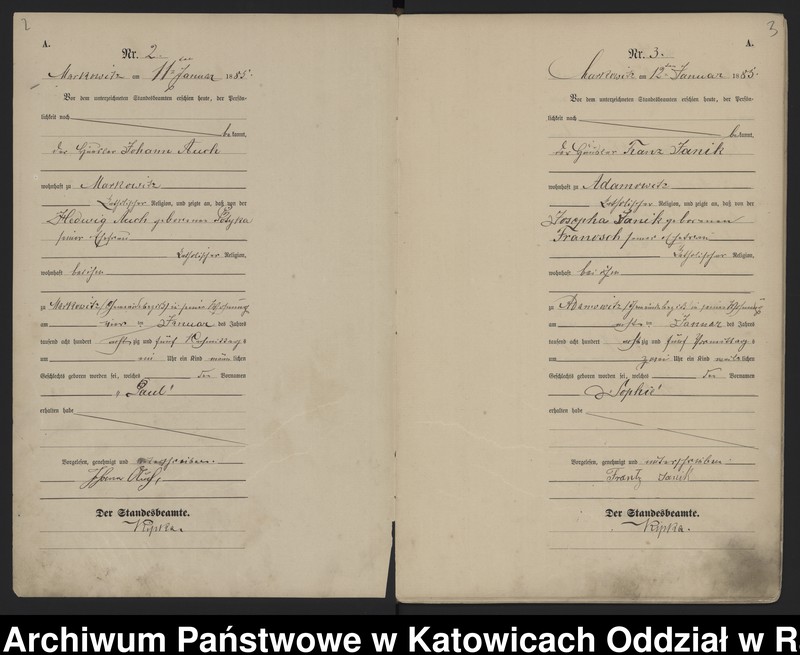 2
A.
Nr. 2.
Markowitz am 11ten Januar 1885.
Vor dem unterzeichneten Standesbeamten erschien heute, der Persön-
lichkeit nach
be kannt,
der Häusler Johann Auch
wohnhaft zu Markowitz
katholischer Religion, und zeigte an, daß von der
Hedwig Auch geborenen
seiner Ehefrau
katholischer Religion,
wohnhaft bei ihm
zu Markowitz (Gemeindebezirk) in seiner Wohnung
am vier ten Januar des Jahres
tausend acht hundert achtzig und fünf Nachmittags
um ein Uhr ein Kind männlichen
Geschlechts geboren worden sei, welches den Vornamen
"Paul"
erhalten habe
Vorgelesen, genehmigt und unterschrieben.
Johann Auch
Der Standesbeamte.
3
A.
Nr. 3.
Markowitz am 12ten Januar 1885.
Vor dem unterzeichneten Standesbeamten erschien heute, der Persön-
lichkeit nach
be kannt,
der Häusler Franz Janik
wohnhaft zu Adamowitz
katholischer Religion, und zeigte an, daß von der
Josepha Janik geborenen
Franosch seiner Ehefrau
katholischer Religion,
wohnhaft bei ihm
zu Adamowitz (Gemeindebezirk) in seiner Wohnung
am achten Januar des Jahres
tausend acht hundert achtzig und fünf Vormittags
um zwei Uhr ein Kind weiblichen
Geschlechts geboren worden sei, welches den Vornamen
"Sophie"
erhalten habe
Vorgelesen, genehmigt und unterschrieben.
Frantz Janik
Der Standesbeamte.
Archiwum Państwowe w Katowicach Oddział w R